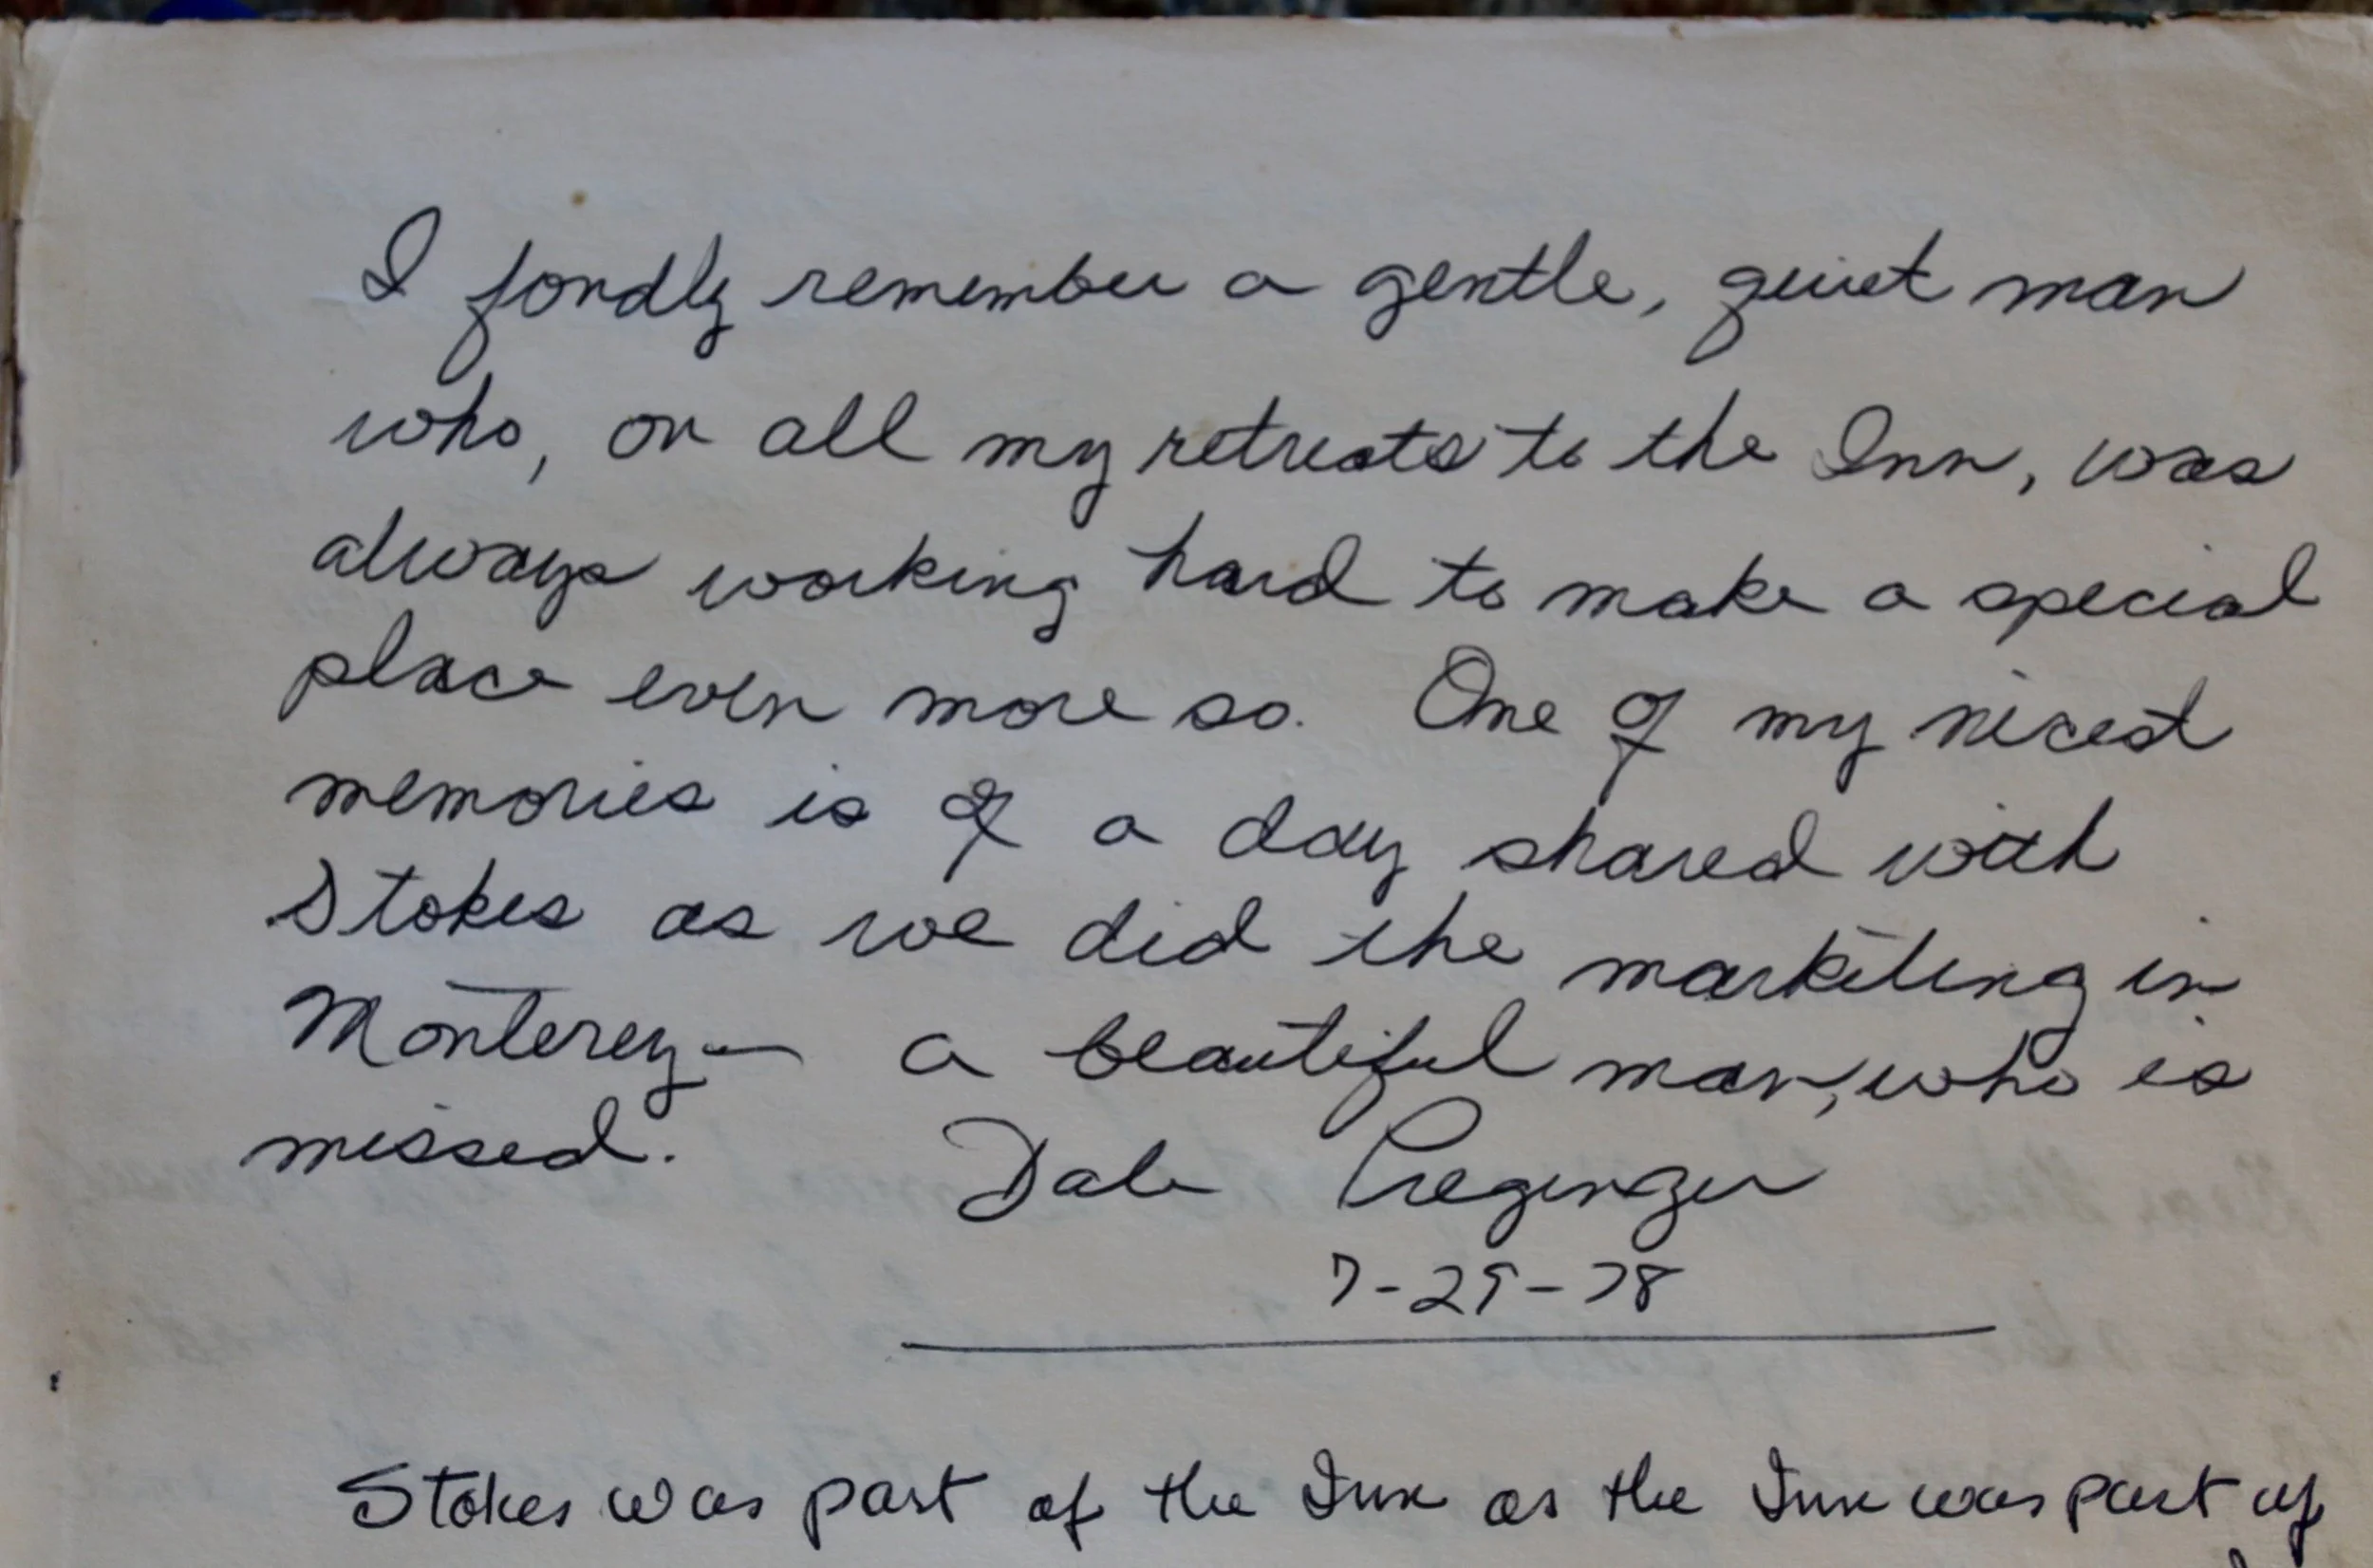 I fondly remember a gentle, quiet man
who, on all my retreats to the Inn, was
always working hard to make a special
place even more so. One of my nicest
memories is of a day shared with
Stokes as we did the marketing in
Monterey — a beautiful man, who is
missed. Dale Preginzer
7-29-78
Stokes was part of the Inn as the Inn was part of